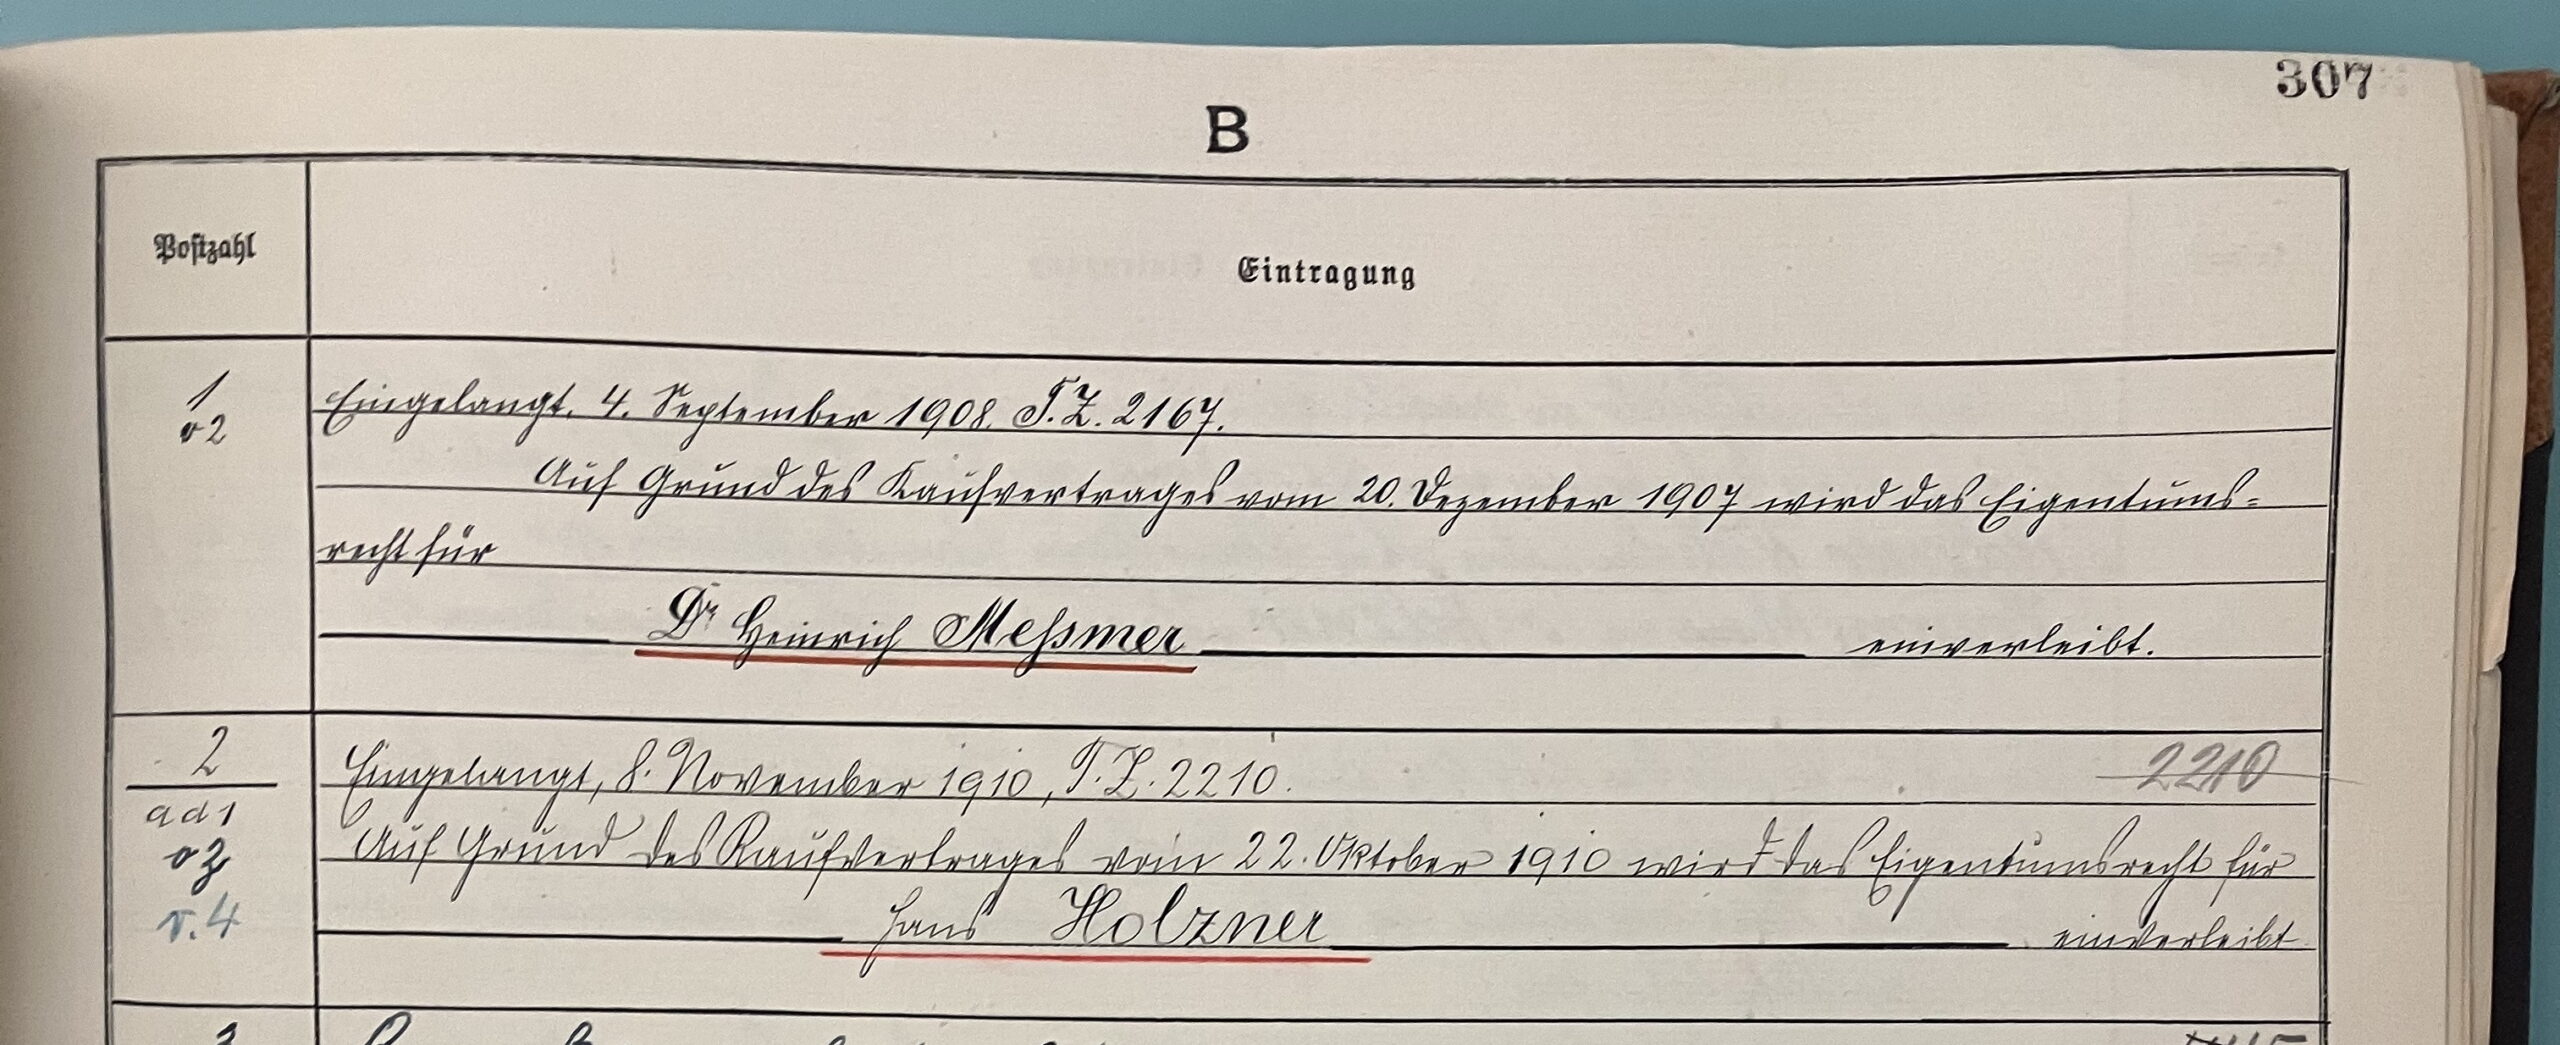 307
B
Postzahl
Eintragung
1
o2
Eingelangt. 4. September 1908. T.Z. 2167.
Auf Grund des Kaufvertrages vom 20. Dezember 1907 wird das Eigentums=
recht für
Dr Heinrich Meßmer einverleibt.
2
ad 1
o3
v. 4
Eingelangt, 8. November 1910, T.Z. 2210.
2210
Auf Grund des Kaufvertrages vom 22. Oktober 1910 wird das Eigentumsrecht für
Hans Holzner einverleibt
3